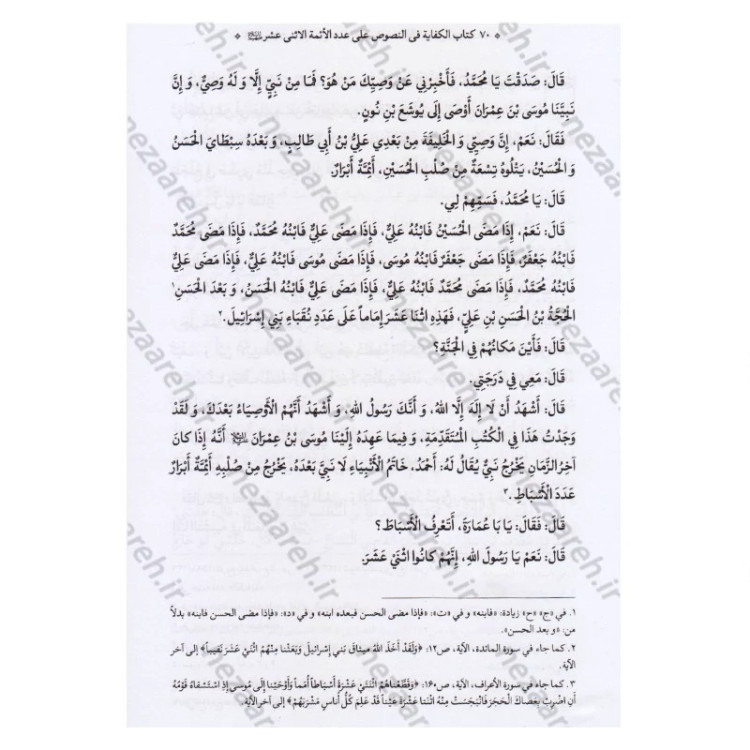 ٧٠ كتاب الكفاية في النصوص على عدد الأئمة الاثنى عشر
قَالَ: صَدَقْتَ يَا مُحَمَّدُ، فَأَخْبِرْنِي عَنْ وَصِيِّكَ مَنْ هُوَ؟ فَمَا مِنْ نَبِيٍّ إِلَّا وَ لَهُ وَصِيٌّ، وَ إِنَّ
نَبِيَّنَا مُوسَى بْنَ عِمْرَانَ أَوْصَى إِلَى يُوشَعَ بْنِ نُونٍ.
فَقَالَ: نَعَمْ، إِنَّ وَصِيِّي وَ الْخَلِيفَةَ مِنْ بَعْدِي عَلِيُّ بْنُ أَبِي طَالِبٍ، وَ بَعْدَهُ سِبْطَايَ الْحَسَنُ
وَ الْحُسَيْنُ، يَتْلُوهُ تِسْعَةٌ مِنْ صُلْبِ الْحُسَيْنِ، أَئِمَّةٌ أَبْرَارٌ.
قَالَ: يَا مُحَمَّدُ، فَسَمِّهِمْ لِي.
قَالَ: نَعَمْ، إِذَا مَضَى الْحُسَيْنُ فَابْنُهُ عَلِيٌّ، فَإِذَا مَضَى عَلِيٌّ فَابْنُهُ مُحَمَّدٌ، فَإِذَا مَضَى مُحَمَّدٌ
فَابْنُهُ جَعْفَرٌ، فَإِذَا مَضَى جَعْفَرٌ فَابْنُهُ مُوسَى، فَإِذَا مَضَى مُوسَى فَابْنُهُ عَلِيٌّ، فَإِذَا مَضَى عَلِيٌّ
فَابْنُهُ مُحَمَّدٌ، فَإِذَا مَضَى مُحَمَّدٌ فَابْنُهُ عَلِيٌّ، فَإِذَا مَضَى عَلِيٌّ فَابْنُهُ الْحَسَنُ، وَ بَعْدَ الْحَسَنِ١
الْحُجَّةُ بْنُ الْحَسَنِ بْنِ عَلِيٍّ، فَهَذِهِ اثْنَا عَشَرَ إِمَاماً عَلَى عَدَدِ نُقَبَاءِ بَنِي إِسْرَائِيلَ.٢
قَالَ: فَأَيْنَ مَكَانُهُمْ فِي الْجَنَّةِ؟
قَالَ: مَعِي فِي دَرَجَتِي.
قَالَ: أَشْهَدُ أَنْ لَا إِلَهَ إِلَّا اللهُ، وَ أَنَّكَ رَسُولُ اللهِ، وَ أَشْهَدُ أَنَّهُمُ الْأَوْصِيَاءُ بَعْدَكَ، وَ لَقَدْ
وَجَدْتُ هَذَا فِي الْكُتُبِ الْمُتَقَدِّمَةِ، وَ فِيمَا عَهِدَهُ إِلَيْنَا مُوسَى بْنُ عِمْرَانَ أَنَّهُ إِذَا كَانَ
آخِرُ الزَّمَانِ يَخْرُجُ نَبِيٌّ يُقَالُ لَهُ: أَحْمَدُ، خَاتَمُ الْأَنْبِيَاءِ لَا نَبِيَّ بَعْدَهُ، يَخْرُجُ مِنْ صُلْبِهِ أَئِمَّةٌ أَبْرَارٌ
عَدَدَ الْأَسْبَاطِ.٣
قَالَ: فَقَالَ: يَا بَا عُمَارَةَ، أَتَعْرِفُ الْأَسْبَاطَ؟
قَالَ: نَعَمْ يَا رَسُولَ اللهِ، إِنَّهُمْ كَانُوا اثْنَيْ عَشَرَ.
١. في «ج» «ح» زيادة: «فابنه» و في «ت»: «فإذا مضى الحسن فبعده ابنه» و في «د»: «فإذا مضى الحسن فابنه» بدلاً
من: «و بعد الحسن».
٢. كما جاء في سورة المائدة، الآية، ص١٢: ﴿وَلَقَدْ أَخَذَ اللهُ مِيثَاقَ بَنِي إِسْرائيلَ وَبَعَثْنا مِنْهُمُ اثْنَيْ عَشَرَ نَقيباً﴾ إلى آخر
الآية.
٣. كما جاء في سورة الأعراف، الآية، ص١٦٠: ﴿وَقَطَّعْناهُمُ اثْنَتَيْ عَشْرَةَ أَسْباطاً أُمَماً وَأَوْحَيْنا إِلى مُوسى إِذِ اسْتَسْقاهُ قَوْمُهُ
أَنِ اضْرِبْ بِعَصاكَ الْحَجَرَ فَانْبَجَسَتْ مِنْهُ اثْنَتا عَشْرَةَ عَيْناً قَدْ عَلِمَ كُلُّ أُناسٍ مَشْرَبَهُمْ﴾ إلى آخر الآية.
nezaareh.ir